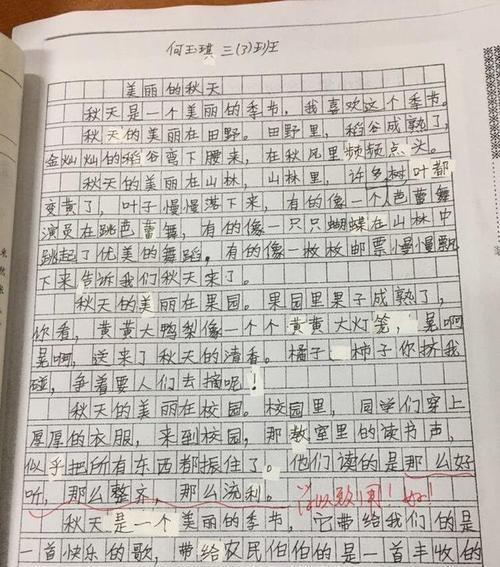 何玉琪 三(7)班
美丽的秋天
秋天是一个美丽的季节，我喜欢这个季节。
秋天的美丽在田野。田野里，稻谷成熟了，
金灿灿的稻谷弯下腰来，在秋风里频频点头。
秋天的美丽在山林，山林里，许多树叶都
变黄了，叶子慢慢落下来，有的像一个人芭蕾舞
演员在跳芭蕾，有的像一只只蝴蝶在山林中
跳起了优美的舞蹈，有的像一枚枚邮票慢慢飘
下来告诉我们秋天来了。
秋天的美丽在果园。果园里果子成熟了，
你看，黄黄大鸭梨像一个个黄黄大灯笼，晃啊
晃啊，送来了秋天的清香。橘子、柿子你挤我
碰，争着要人们去摘呢！
秋天的美丽在校园。校园里，同学们穿上
厚厚的衣服，来到校园，那教室里的读书声，
似乎把所有东西都振住了。他们读的是那么好
听，那么整齐，那么流利。
秋天是一个美丽的季节，它带给我们的是
一首快乐的歌，带给农民伯伯的是一首丰收的